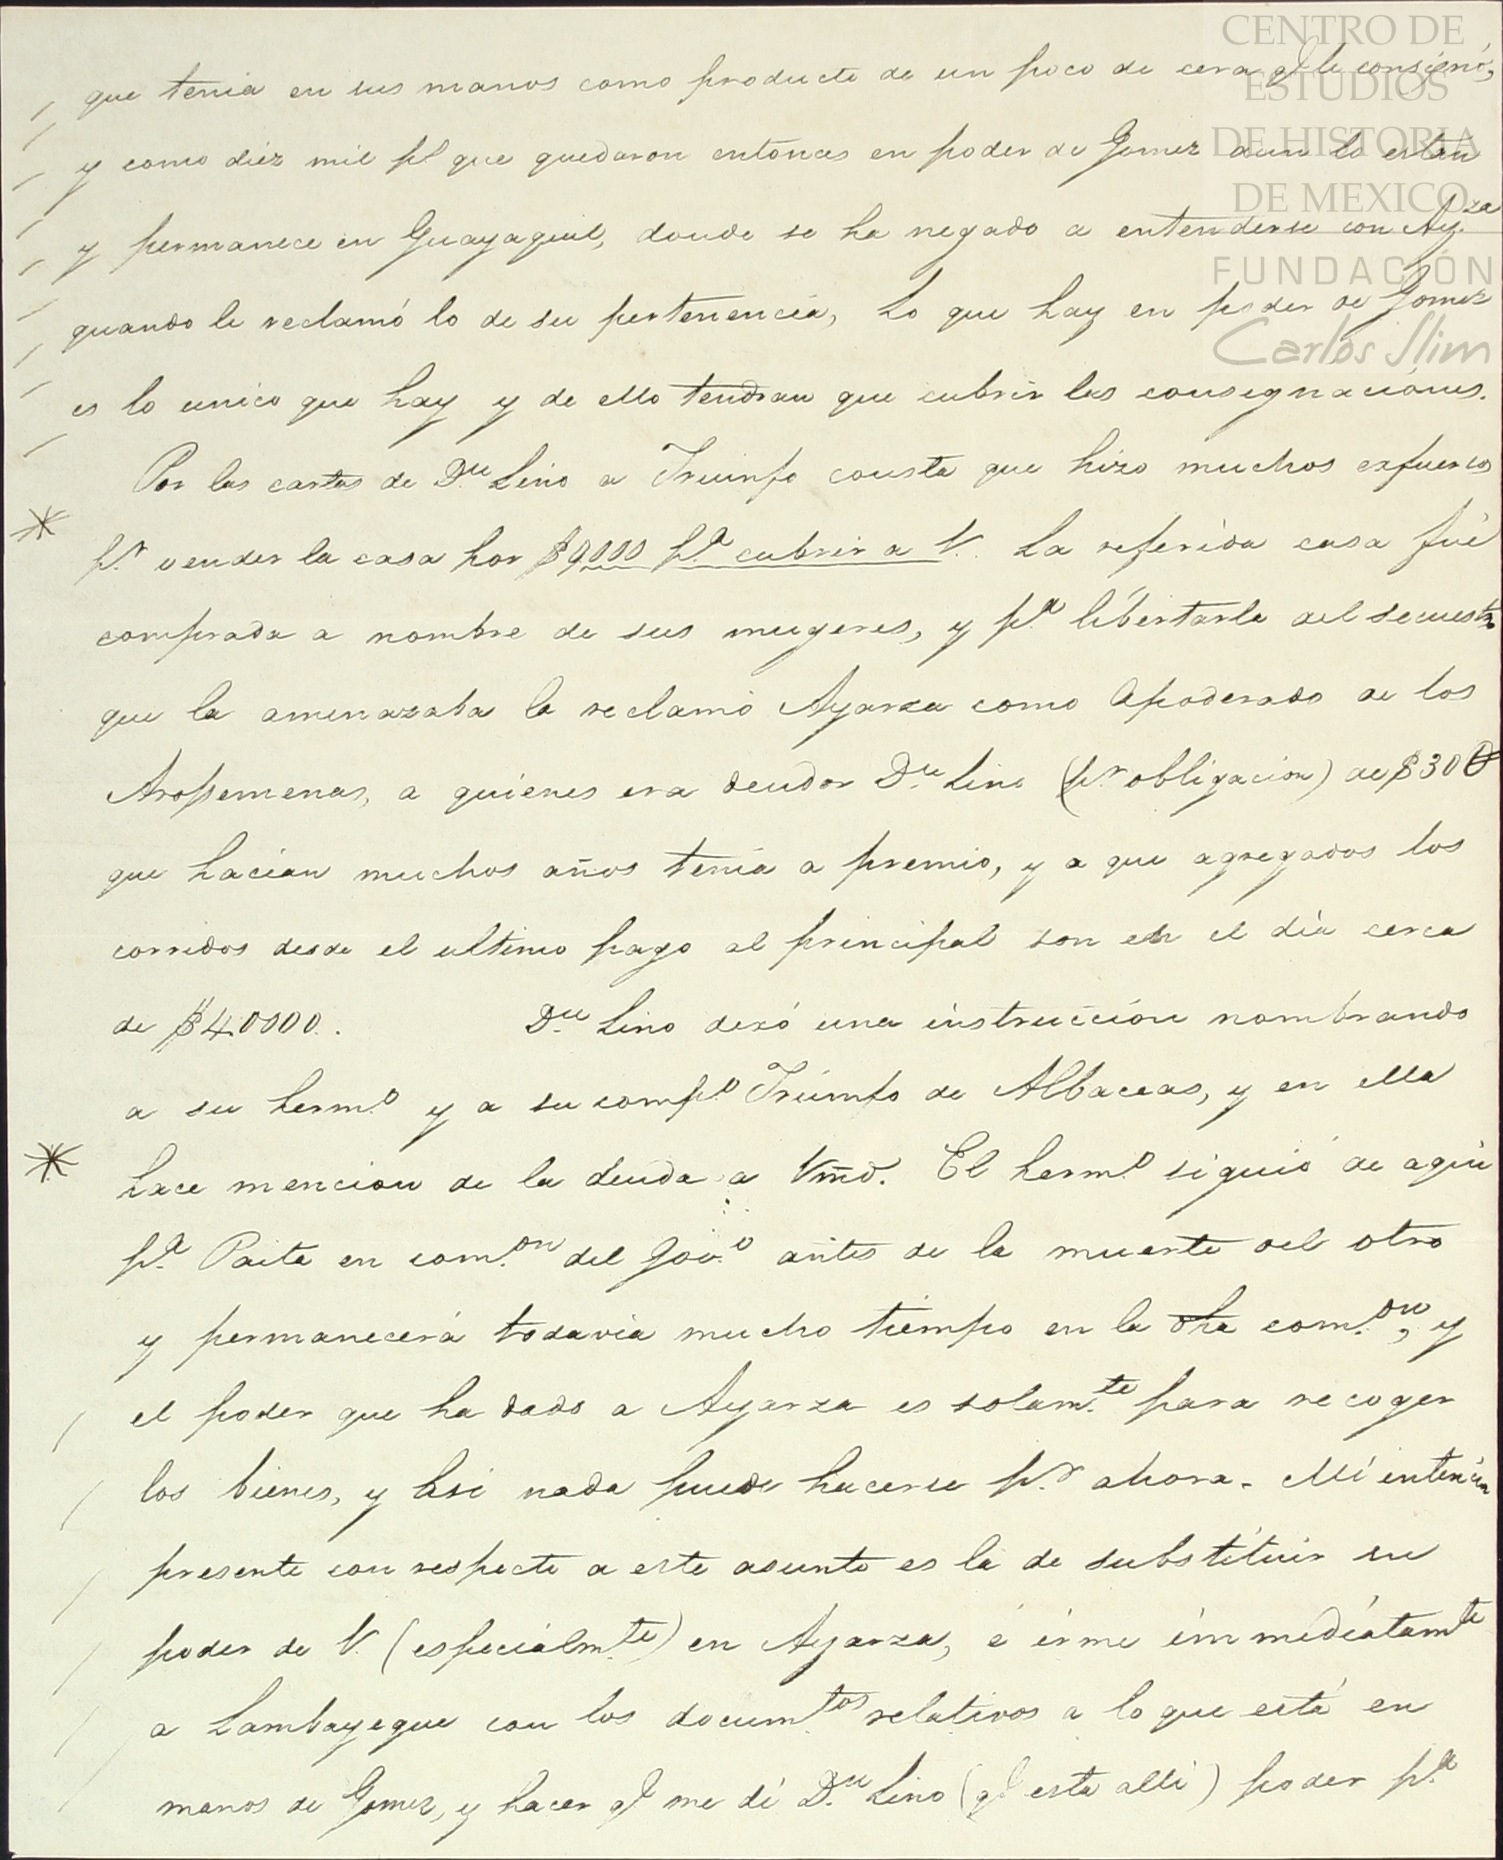 CENTRO DE
ESTUDIOS
DE HISTORIA
DE MEXICO
FUNDACIÓN
Carlos Slim
que tenia en sus manos como producto de un poco de cera q.e le consignó,
y como diéz mil p.s que quedaron entónces en poder de Gomez aun lo estan
y permanece en Guayaquil, donde se ha negado a entenderse con Ay.za
quando le reclamó lo de su pertenencia, Lo que hay en poder de Gomez
es lo unico que hay y de ello tendran que cubrir las consignaciónes.
Por las cartas de D.n Lino a Triunfo consta que hizo muchos esfuerzos
p.r vender la casa por $9000 p.a cubrir a V. La referida casa fué
comprada a nombre de sus mugeres, y p.a libertarla del secuestro
que la amenazaba la reclamó Ayarza como Apoderado de los
Arosemenas, a quiénes era deudor D.n Lino (p.r obligacion) de $300
que hacian muchos años tenia a premio, y a que agregados los
corridos desde el ultimo pago al principal son en el dia cerca
de $40000. D.n Lino dexó una instrucción nombrando
a su herm.o y a su comp.o Triumfo de Albaceas, y en ella
hace mencion de la deuda a Vmd. El herm.o siguió de aqui
p.a Paita en com.on del Gov.o antes de la muerte del otro
y permanecerá todavia mucho tiempo en la dha com.on, y
el poder que ha dado a Ayarza es solam.te para recoger
los bienes, y asi nada puede hacerse p.r ahora. Mi intención
presente con respecto a este asunto es la de substituir su
poder de V. (especialm.te) en Ayarza, é irme immediatam.te
a Lambayeque con los docum.tos relativos a lo que está en
manos de Gomez, y hacer q.e me dé D.n Lino (q.e esta alli) poder p.a